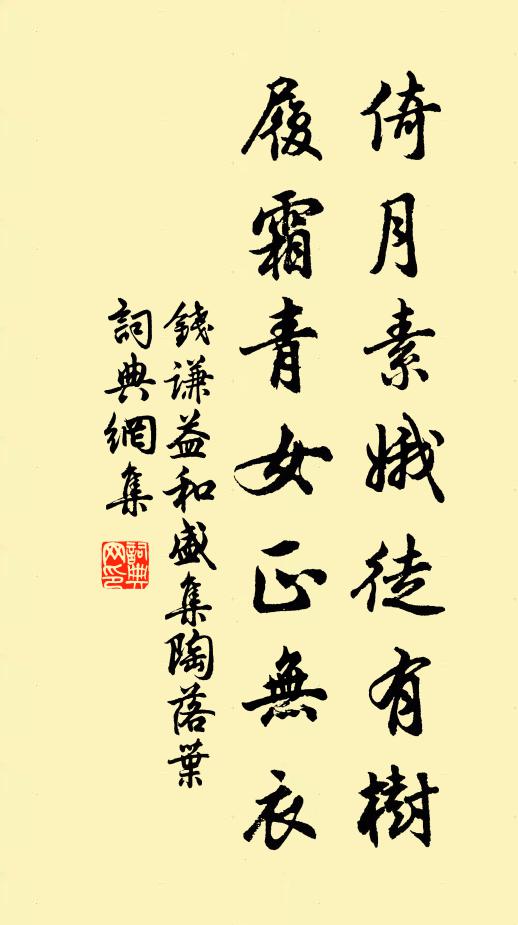 倚月素娥徒有樹
履霜青女正無衣
錢謙益和盛集陶落葉
詞典網集
詞典
网印